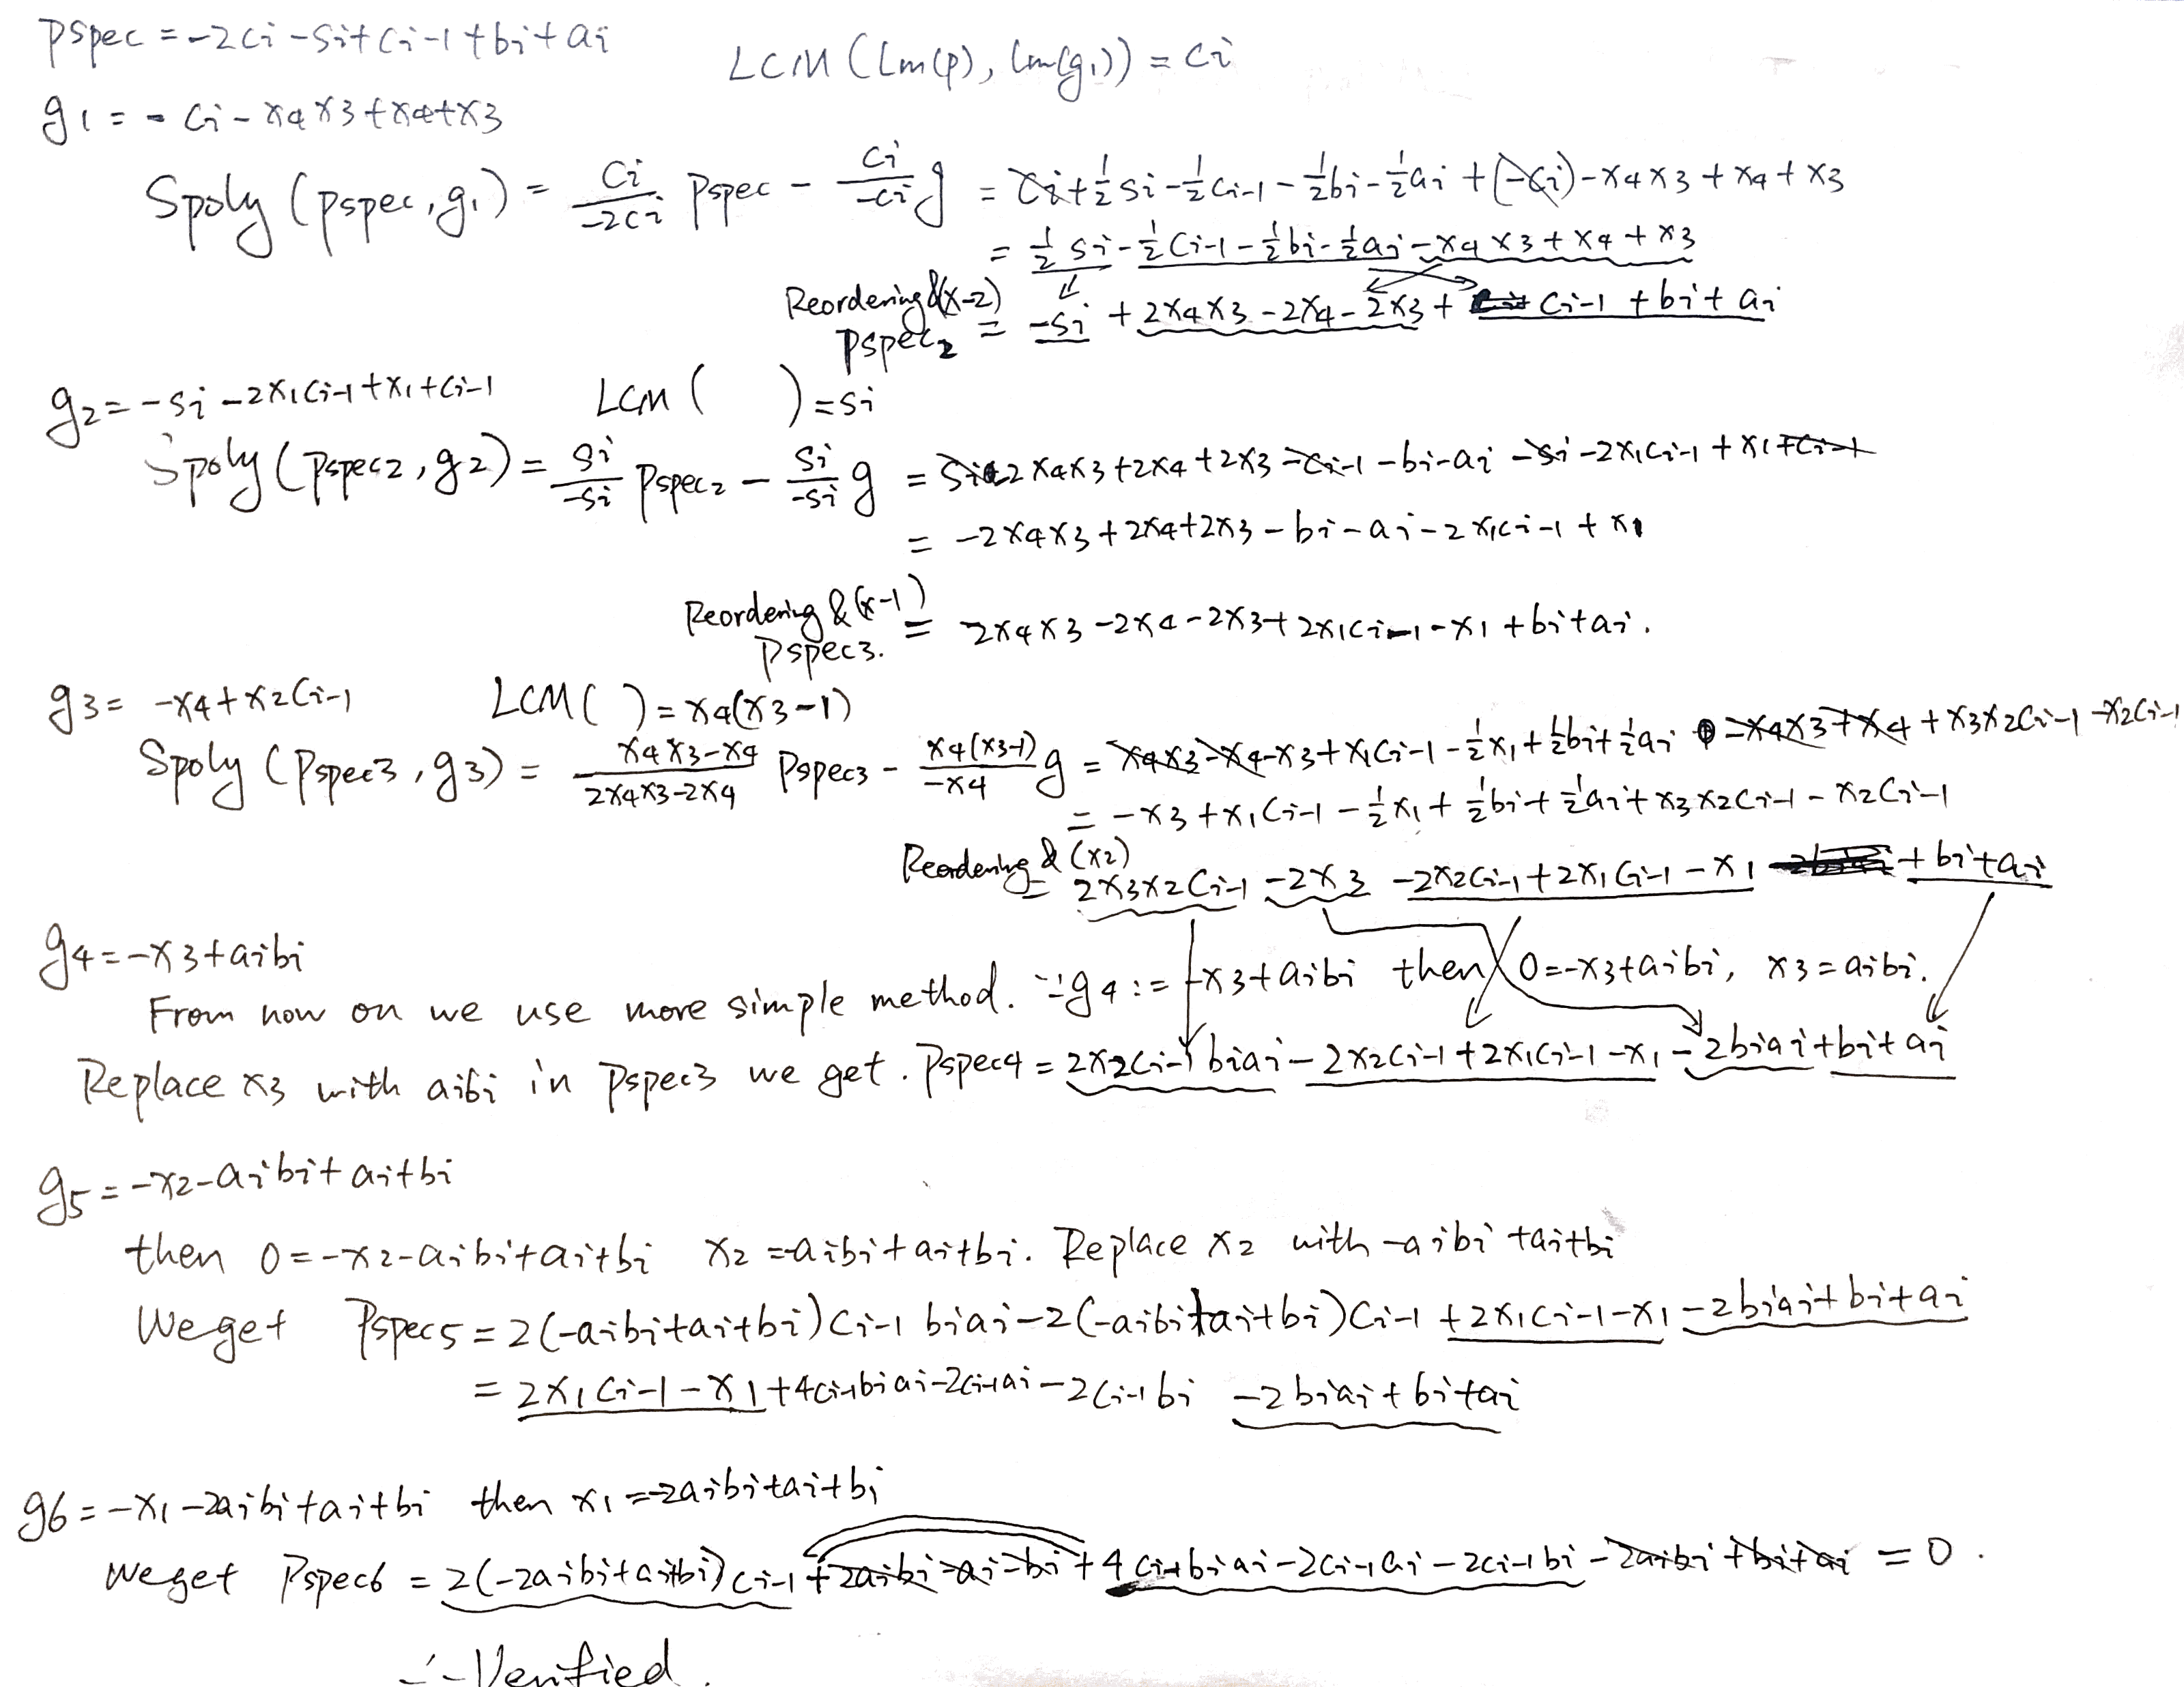 Pspec = -2ci - si + ci-1 + bi + ai
LCM (Lm(p), Lm(g1)) = ci
g1 = - ci - x4x3 + x4 + x3
Spoly (Pspec, g1) = ci/-2ci Pspec - ci/-ci g = ci + 1/2 si - 1/2 ci-1 - 1/2 bi - 1/2 ai + (-ci) - x4x3 + x4 + x3
= 1/2 si - 1/2 ci-1 - 1/2 bi - 1/2 ai - x4x3 + x4 + x3
Reordering & (x-2)
Pspec2 = -si + 2x4x3 - 2x4 - 2x3 + ci-1 + bi + ai
g2 = -si - 2x1ci-1 + x1 + ci-1 LCM ( ) = si
Spoly (Pspec2, g2) = si/-si Pspec2 - si/-si g = si - 2x4x3 + 2x4 + 2x3 - ci-1 - bi - ai - si - 2x1ci-1 + x1 + ci-1
= -2x4x3 + 2x4 + 2x3 - bi - ai - 2x1ci-1 + x1
Reordering & (x-1)
Pspec3. = 2x4x3 - 2x4 - 2x3 + 2x1ci-1 - x1 + bi + ai.
g3 = -x4 + x2ci-1 LCM ( ) = x4(x3-1)
Spoly (Pspec3, g3) = x4x3-x4/2x4x3-2x4 Pspec3 - x4(x3-1)/-x4 g = x4x3 - x4 - x3 + x1ci-1 - 1/2 x1 + 1/2 bi + 1/2 ai - x4x3 + x4 + x3x2ci-1 - x2ci-1
= -x3 + x1ci-1 - 1/2 x1 + 1/2 bi + 1/2 ai + x3x2ci-1 - x2ci-1
Reordering & (x2)
= 2x3x2ci-1 - 2x3 - 2x2ci-1 + 2x1ci-1 - x1 + bi + ai
g4 = -x3 + aibi
From now on we use more simple method. ∵ g4 := -x3 + aibi then 0 = -x3 + aibi, x3 = aibi.
Replace x3 with aibi in Pspec3 we get. Pspec4 = 2x2ci-1biai - 2x2ci-1 + 2x1ci-1 - x1 - 2biai + bi + ai
g5 = -x2 - aibi + ai + bi
then 0 = -x2 - aibi + ai + bi x2 = -aibi + ai + bi. Replace x2 with -aibi + ai + bi
We get Pspec5 = 2(-aibi + ai + bi)ci-1 biai - 2(-aibi + ai + bi)ci-1 + 2x1ci-1 - x1 - 2biai + bi + ai
= 2x1ci-1 - x1 + 4ci-1biai - 2ci-1ai - 2ci-1bi - 2biai + bi + ai
g6 = -x1 - 2aibi + ai + bi then x1 = -2aibi + ai + bi
We get Pspec6 = 2(-2aibi + ai + bi)ci-1 + 2aibi - ai - bi + 4ci-1biai - 2ci-1ai - 2ci-1bi - 2aibi + bi + ai = 0.
∴ Verified.